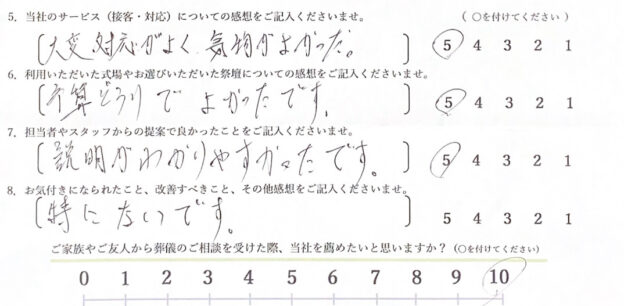 5. 当社のサービス（接客・対応）についての感想をご記入くださいませ。 （○を付けてください）
[大変対応がよく、気持がよかった。] 5 4 3 2 1
6. 利用いただいた式場やお選びいただいた祭壇についての感想をご記入くださいませ。
[予算どうりでよかったです。] 5 4 3 2 1
7. 担当者やスタッフからの提案で良かったことをご記入くださいませ。
[説明がわかりやすかったです。] 5 4 3 2 1
8. お気付きになられたこと、改善すべきこと、その他感想をご記入くださいませ。
[特にないです。] 5 4 3 2 1
ご家族やご友人から葬儀のご相談を受けた際、当社を薦めたいと思いますか？（○を付けてください）
0 1 2 3 4 5 6 7 8 9 10